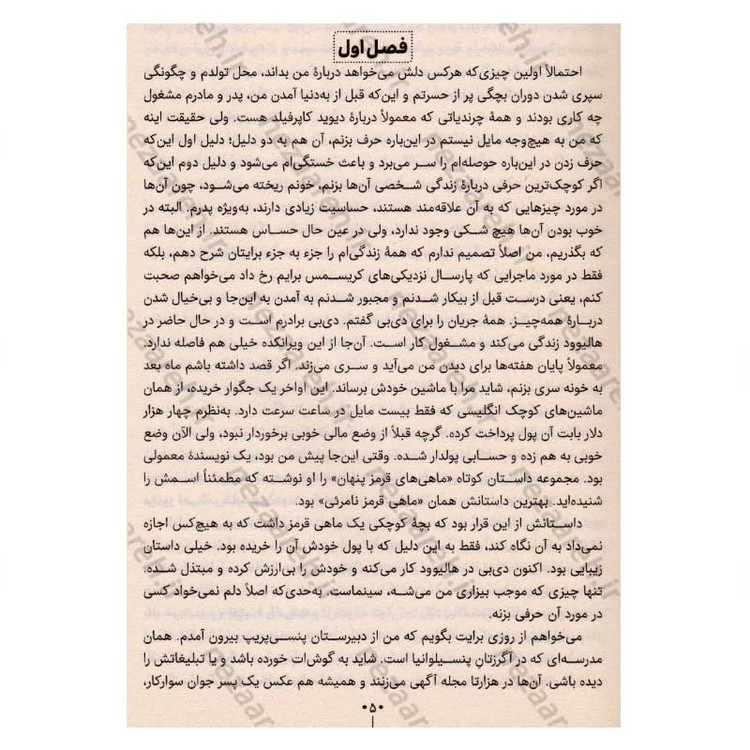 فصل اول
احتمالاً اولین چیزی که هرکس دلش می‌خواهد دربارهٔ من بداند، محل تولدم و چگونگی
سپری شدن دوران بچگی پر از حسرتم و این‌که قبل از به‌دنیا آمدن من، پدر و مادرم مشغول
چه کاری بودند و همهٔ چرندیاتی که معمولاً دربارهٔ دیوید کاپرفیلد هست. ولی حقیقت اینه
که من به هیچ‌وجه مایل نیستم در این‌باره حرف بزنم، آن هم به دو دلیل؛ دلیل اول این‌که
حرف زدن در این‌باره حوصله‌ام را سر می‌برد و باعث خستگی‌ام می‌شود و دلیل دوم این‌که
اگر کوچک‌ترین حرفی دربارهٔ زندگی شخصی آن‌ها بزنم، خونم ریخته می‌شود، چون آن‌ها
در مورد چیزهایی که به آن علاقه‌مند هستند، حساسیت زیادی دارند، به‌ویژه پدرم. البته در
خوب بودن آن‌ها هیچ شکی وجود ندارد، ولی در عین حال حساس هستند. از این‌ها هم
که بگذریم، من اصلاً تصمیم ندارم که همهٔ زندگی‌ام را جزء به جزء برایتان شرح دهم، بلکه
فقط در مورد ماجرایی که پارسال نزدیکی‌های کریسمس برایم رخ داد می‌خواهم صحبت
کنم، یعنی درست قبل از بیکار شدنم و مجبور شدنم به آمدن به این‌جا و بی‌خیال شدن
دربارهٔ همه‌چیز. همهٔ جریان را برای دی‌بی گفتم. دی‌بی برادرم است و در حال حاضر در
هالیوود زندگی می‌کند و مشغول کار است. آن‌جا از این ویرانکده خیلی هم فاصله ندارد.
معمولاً پایان هفته‌ها برای دیدن من می‌آید و سری می‌زند. اگر قصد داشته باشم ماه بعد
به خونه سری بزنم، شاید مرا با ماشین خودش برساند. این اواخر یک جگوار خریده، از همان
ماشین‌های کوچک انگلیسی که فقط بیست مایل در ساعت سرعت دارد. به‌نظرم چهار هزار
دلار بابت آن پول پرداخت کرده. گرچه قبلاً از وضع مالی خوبی برخوردار نبود، ولی الآن وضع
خوبی به هم زده و حسابی پولدار شده. وقتی این‌جا پیش من بود، یک نویسندهٔ معمولی
بود. مجموعه داستان کوتاه «ماهی‌های قرمز پنهان» را او نوشته که مطمئناً اسمش را
شنیده‌اید. بهترین داستانش همان «ماهی قرمز نامرئی» بود.
داستانش از این قرار بود که بچهٔ کوچکی یک ماهی قرمز داشت که به هیچ‌کس اجازه
نمی‌داد به آن نگاه کند، فقط به این دلیل که با پول خودش آن را خریده بود. خیلی داستان
زیبایی بود. اکنون دی‌بی در هالیوود کار می‌کنه و خودش را بی‌ارزش کرده و مبتذل شده.
تنها چیزی که موجب بیزاری من می‌شه، سینماست. به‌حدی‌که اصلاً دلم نمی‌خواد کسی
در مورد آن حرفی بزنه.
می‌خواهم از روزی برایت بگویم که من از دبیرستان پنسی‌پریپ بیرون آمدم. همان
مدرسه‌ای که در اگرزتانِ پنسیلوانیا است. شاید به گوش‌ات خورده باشد و یا تبلیغاتش را
دیده باشی. آن‌ها در هزارتا مجله آگهی می‌زنند و همیشه هم عکس یک پسر جوان سوارکار،
•۵•
nezaareh.ir